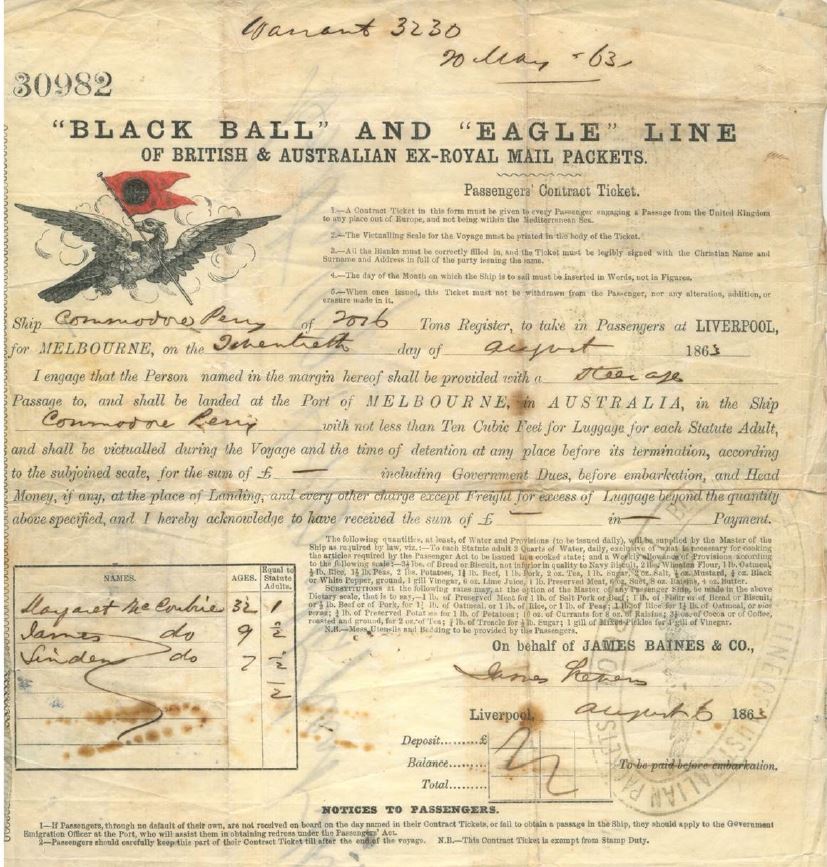 Warrant 3230
20 May - 63
30982
"BLACK BALL" AND "EAGLE" LINE
OF BRITISH & AUSTRALIAN EX-ROYAL MAIL PACKETS.
Passengers' Contract Ticket.
1.—A Contract Ticket in this form must be given to every Passenger engaging a Passage from the United Kingdom
to any place out of Europe, and not being within the Mediterranean Sea.
2.—The Victualling Scale for the Voyage must be printed in the body of the Ticket.
3.—All the Blanks must be correctly filled in, and the Ticket must be legibly signed with the Christian Name and
Surname and Address in full of the party issuing the same.
4.—The day of the Month on which the Ship is to sail must be inserted in Words, not in Figures.
5.—When once issued, this Ticket must not be withdrawn from the Passenger, nor any alteration, addition, or
erasure made in it.
Ship Commodore Perry of 2016 Tons Register, to take in Passengers at LIVERPOOL,
for MELBOURNE, on the day of August 1863
I engage that the Person named in the margin hereof shall be provided with a Steerage
Passage to, and shall be landed at the Port of MELBOURNE, in AUSTRALIA, in the Ship
Commodore Perry with not less than Ten Cubic Feet for Luggage for each Statute Adult,
and shall be victualled during the Voyage and the time of detention at any place before its termination, according
to the subjoined scale, for the sum of £ — including Government Dues, before embarkation, and Head
Money, if any, at the place of Landing, and every other charge except Freight for excess of Luggage beyond the quantity
above specified, and I hereby acknowledge to have received the sum of £ — in — Payment.
The following quantities, at least, of Water and Provisions (to be issued daily), will be supplied by the Master of the
Ship as required by law, viz.:—To each Statute adult 3 Quarts of Water, daily, exclusive of what is necessary for cooking
the articles required by the Passenger Act to be issued in a cooked state; and a Weekly allowance of Provisions according
to the following scale:—3½ lbs. of Bread or Biscuit, not inferior in quality to Navy Biscuit, 2 lbs. Wheaten Flour, 1 lb. Oatmeal,
Rice, 1½ lb. Peas, 2 lbs. Potatoes, 1¼ lb. Beef, 1 lb. Pork, 2 oz. Tea, 1 lb. Sugar, 2 oz. Salt, ½ oz. Mustard, ¼ oz. Black
or White Pepper, ground, 1 gill Vinegar, 6 oz. Lime Juice, 1 lb. Preserved Meat, 6 oz. Suet, 8 oz. Raisins, 4 oz. Butter.
SUBSTITUTIONS at the following rates may, at the option of the Master of any Passenger Ship, be made in the above
Dietary scale, that is to say,—1 lb. of Preserved Meat for 1 lb. of Salt Pork or
N.B.—Mess Utensils and Bedding to be provided by the Passengers.
NAMES. AGES. Equal to Statute Adults.
Margaret McCombie 32 1
James do 9 ½
do 7 ½
2
On behalf of JAMES BAINES & CO.,
James
Liverpool, August 6 1863
Deposit.........£
Balance......... To be paid before embarkation.
Total.........
NOTICES TO PASSENGERS.
1—If Passengers, through no default of their own, are not received on board on the day named in their Contract Tickets, or fail to obtain a passage in the Ship, they should apply to the Government
Emigration Officer at the Port, who will assist them in obtaining redress under the Passengers' Act.
2—Passengers should carefully keep this part of their Contract Ticket till after the end of the voyage. N.B.—This Contract Ticket is exempt from Stamp Duty.